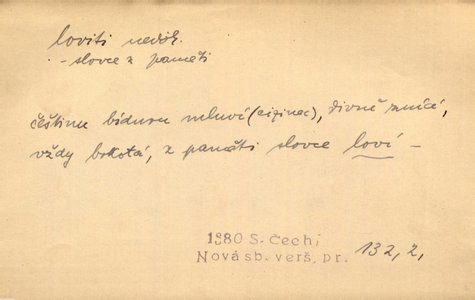 loviti nedok.
- slovce z paměti
češtinu bídnou mluví (cizinec), divně znící,
vždy brkotá, z paměti slovce loví -
1880 S. Čech,
Novásb. verš. pr. 132, 2,